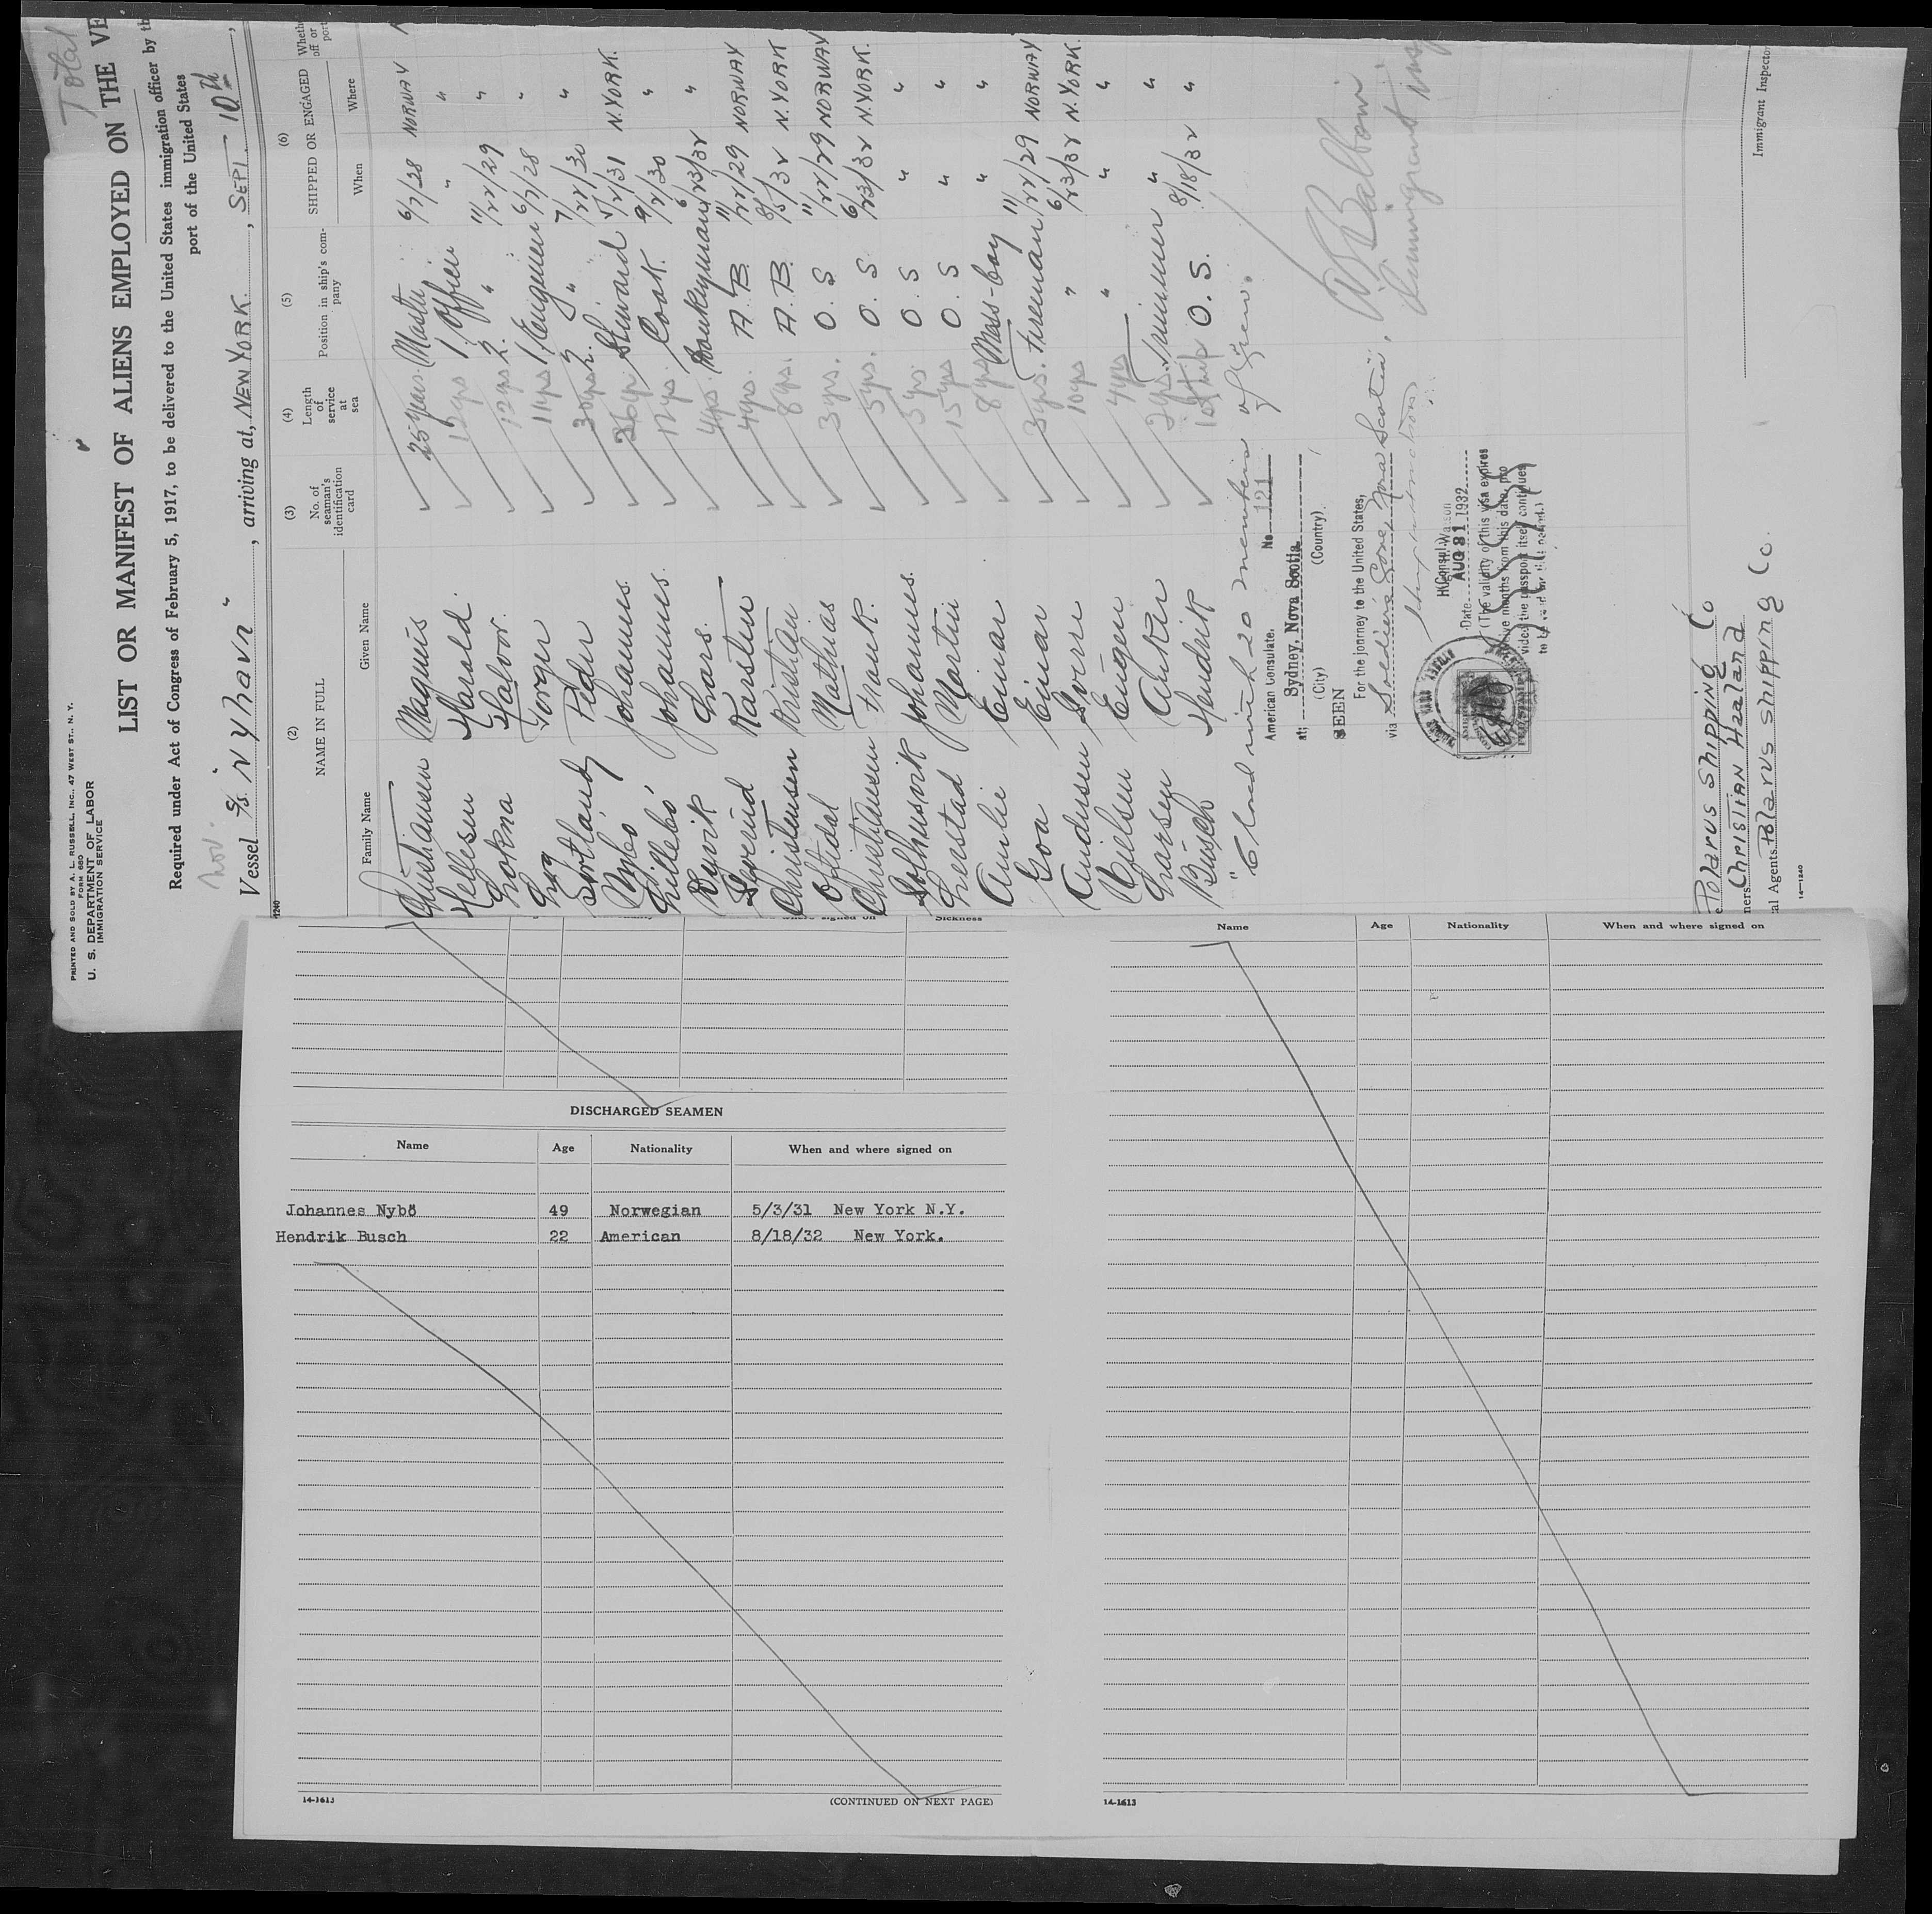 Total
PRINTED AND SOLD BY A. L. RUSSELL, INC., 47 WEST ST., N. Y.
FORM 680
U. S. DEPARTMENT OF LABOR
IMMIGRATION SERVICE
LIST OR MANIFEST OF ALIENS EMPLOYED ON THE VE
Required under Act of Congress of February 5, 1917, to be delivered to the United States immigration officer by th
port of the United States
Nov.
Vessel S/S. "Nyhavn", arriving at, NEW YORK., SEPT. 10th,
(2) (3) (4) (5) (6)
NAME IN FULL No. of seaman's identification card Length of service at sea Position in ship's company SHIPPED OR ENGAGED Wheth off or port
Family Name Given Name When Where
Christiansen Magnus 25 years Master 6/7/28 NORWAY
Hellesen Harald 12 yrs 1. Officer " "
Lokna Halvor 12 yrs 2. " 11/22/29 "
Lura Torger 11 yrs 1. Engineer 6/7/28 "
Sortland Peder 30 yrs 2. " 7/22/30 "
Nybö Johannes 26 yr. Steward 5/2/31 N.YORK.
Lillebö Johannes 17 yrs. Cook 9/2/30 "
Lars 4 yrs. Donkeyman 6/23/32 "
Sverud Karsten 4 yrs. A. B. 11/22/29 NORWAY
Christensen Kristian 8 yrs. A. B. 8/5/32 N.YORK
Oftedal Mathias 3 yrs. O. S 11/22/29 NORWAY
Christiansen Frank. 5 yrs. O. S. 6/23/32 N.YORK.
Solhusvik Johannes. 5 yrs O. S " "
Lerstad Martin 15 yrs O. S " "
Aurlie Einar 8 yrs Mess-boy " "
Goa Einar 3 yrs. Fireman 11/22/29 NORWAY
Andersen Sverre 10 yrs " 6/23/32 N.YORK.
Nielsen Eugen 4 yrs " " "
Larsen Anker 2 yrs. Trimmer " "
Busch Hendrik 1st trip O. S. 8/18/32 "
"Closed with 20 members of crew.
American Consulate. No. 121
at; Sydney, Nova Scotia
(City) (Country)
SEEN
For the journey to the United States,
via Soldiers Cove, Nova Scotia.
Immigrant Insp
AUG 31 1932
Date
(The validity of this visa expires
twelve months from this date, pro
vided the passport itself continues
to be valid for that period.)
Polarus Shipping Co
ners Christian Haaland
al Agents Polarus Shipping Co.
Immigrant Inspector
14—1240
where signed on Sickness
DISCHARGED SEAMEN
Name Age Nationality When and where signed on
Johannes Nybö 49 Norwegian 5/3/31 New York N.Y.
Hendrik Busch 22 American 8/18/32 New York.
14-1613
(CONTINUED ON NEXT PAGE)
Name Age Nationality When and where signed on
14-1613